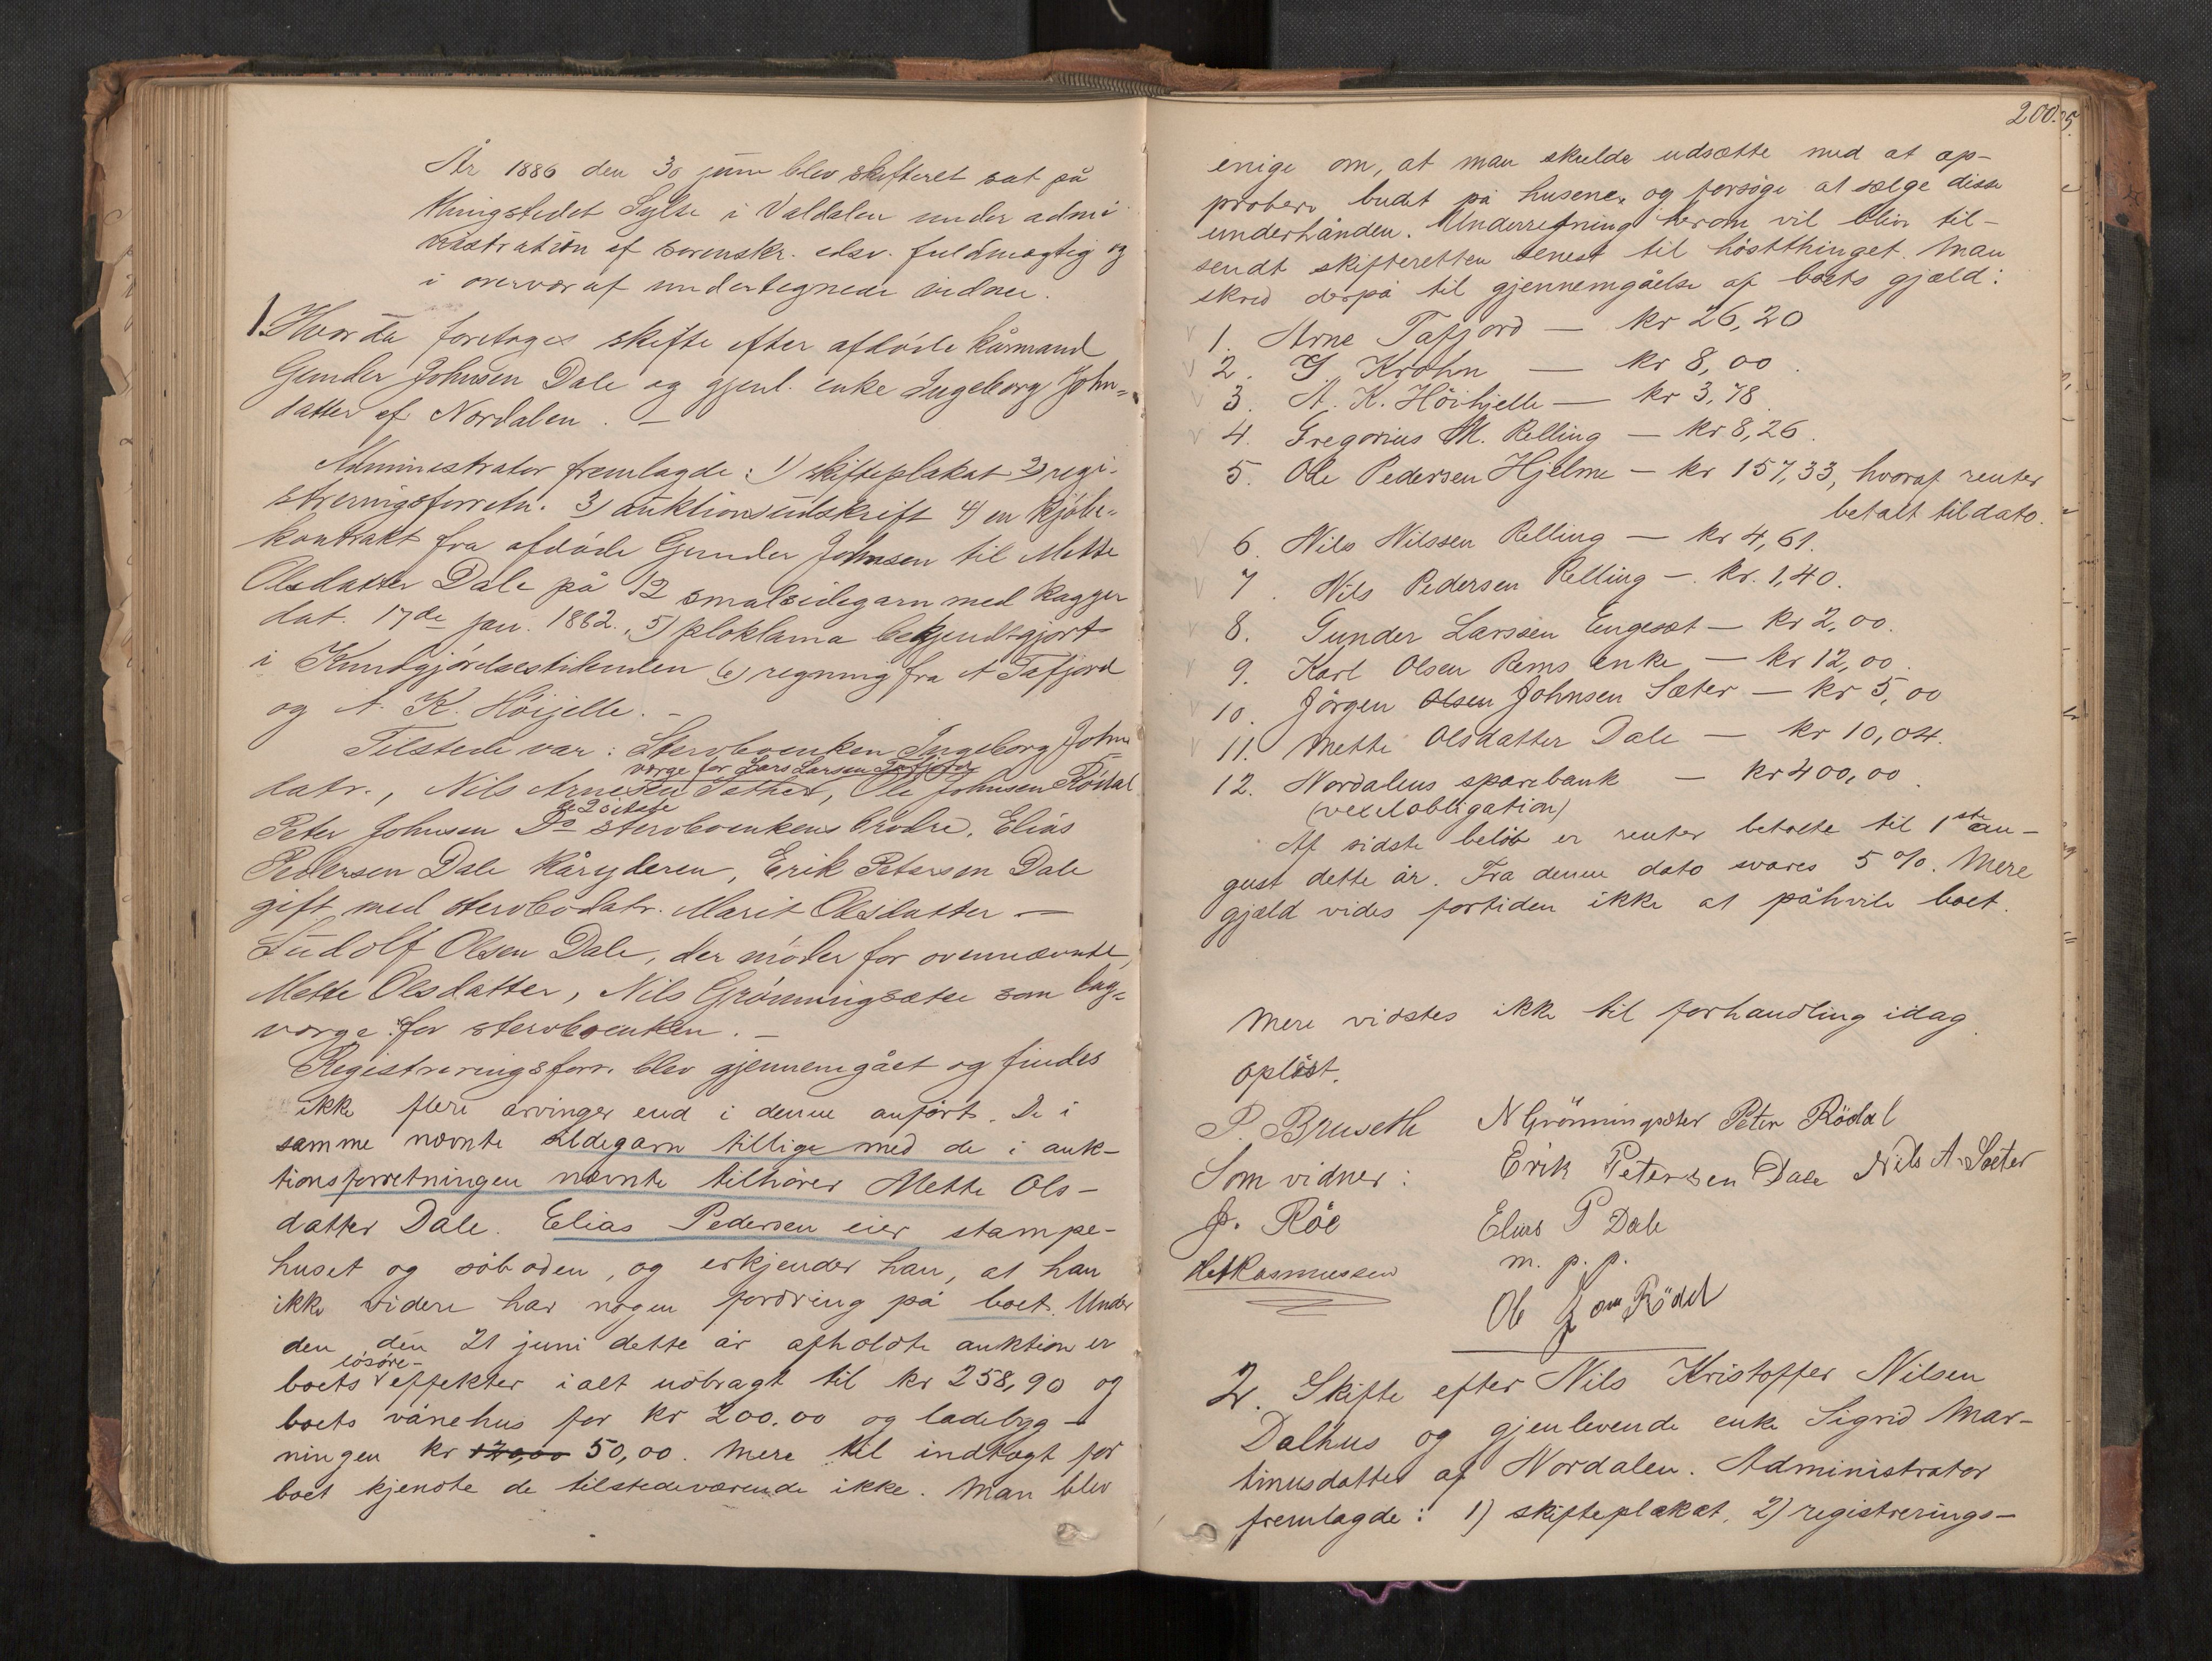 År 1886 den 30 juni blev skifteret sat på
thingstedet Sylte i Valdalen under admi
nistration af sorenskr. edsv. fuldmægtig og
i overvær af undertegnede vidner.
1. Hvor da foretages skifte efter afdøde kårmand
Gunder Johnsen Dale og gjenl. enke Ingeborg John-
datter af Nordalen. —
Administrator fremlagde: 1) skifteplakat 2) regi-
streringsforretn. 3) auktionsudskrift 4) en kjøbe-
kontrakt fra afdøde Gunder Johnsen til Mette
Olsdatter Dale på 12 smalsidegarn med kagger
dat. 17de jan. 1862. 5) proklama bekjendtgjort
i Kundgjørelsestidenden 6) regning fra A Tafjord
og A. K. Höijelle. —
Tilstede var: Sterboenken Ingeborg John
værge for Lars Larsen Tafjord
datr., Nils Arnesen Sæther, Ole Johnsen Rödal
de 2 sidste
Peter Johnsen Do sterboenkens brødre, Elias
Pedersen Dale kåryderen, Erik Petersen Dale
gift med sterbodatr. Marit Olsdatter —
Ludolf Olsen Dale, der møder for ovennævnte
Mette Olsdatter, Nils Grönningsæter som lag-
værge for sterboenken. —
Registreringsforr. blev gjennemgået og findes
ikke flere arvinger end i denne anført. De i
samme nævnte sildegarn tillige med de i auk-
tionsforretningen nævnte tilhører Mette Ols-
datter Dale. Elias Pedersen eier stampe-
huset og söboden, og erkjender han, at han
ikke videre har nogen fordring på boet. Under
den den 21 juni dette år afholdte auktion er
lösöre-
boets effekter ialt udbragt til kr 258,90 og
boets vånehus for kr 200.00 og ladebyg-
ningen kr 120,00 50,00. Mere til indtægt for
boet kjendte de tilstedeværende ikke. Man blev
200.
enige om, at man skulde udsætte med at ap-
probere budet på husene, og forsøge at sælge disse
underhånden. Underretning herom vil blive til-
sendt skifteretten senest til höstthinget. Man
skred derpå til gjennemgåelse af boets gjæld:
1. Arne Tafjord — kr 26,20
2. G Krohn — kr 8,00.
3. A. K. Höihjelle — kr 3,78
4. Gregorius M. Relling — kr 8,26.
5. Ole Pedersen Hjelme — kr 157,33, hvoraf renter
betalt til dato.
6. Nils Nilssen Relling — kr 4,61.
7. Nils Pedersen Relling — kr. 1,40.
8. Gunder Larssen Engeset — kr 2,00.
9. Karl Olsen Rems enke — kr 12,00.
10. Jörgen Olsen Johnsen Sæter — kr 5,00
11. Mette Olsdatter Dale — kr 10,04.
12. Nordalens sparebank — kr 400,00
(vexelobligation)
Af sidste beløb er renter betalte til 1ste au-
gust dette år. Fra denne dato svares 5 %. Mere
gjæld vides fortiden ikke at påhvile boet.
Mere vidstes ikke til forhandling idag.
Oplöst.
P. Bruseth N Grönningsæter Peter Rödal
Som vidner: Erik Petersen Dale Nils A. Sæter
P. Röe Elias P Dale
m. p. p.
Rasmussen
2. Skifte efter Nils Kristoffer Nilsen
Dalhus og gjenlevende enke Sigrid Mar-
tinusdatter af Nordalen. Administrator
fremlagde: 1) skifteplakat, 2) registrerings-